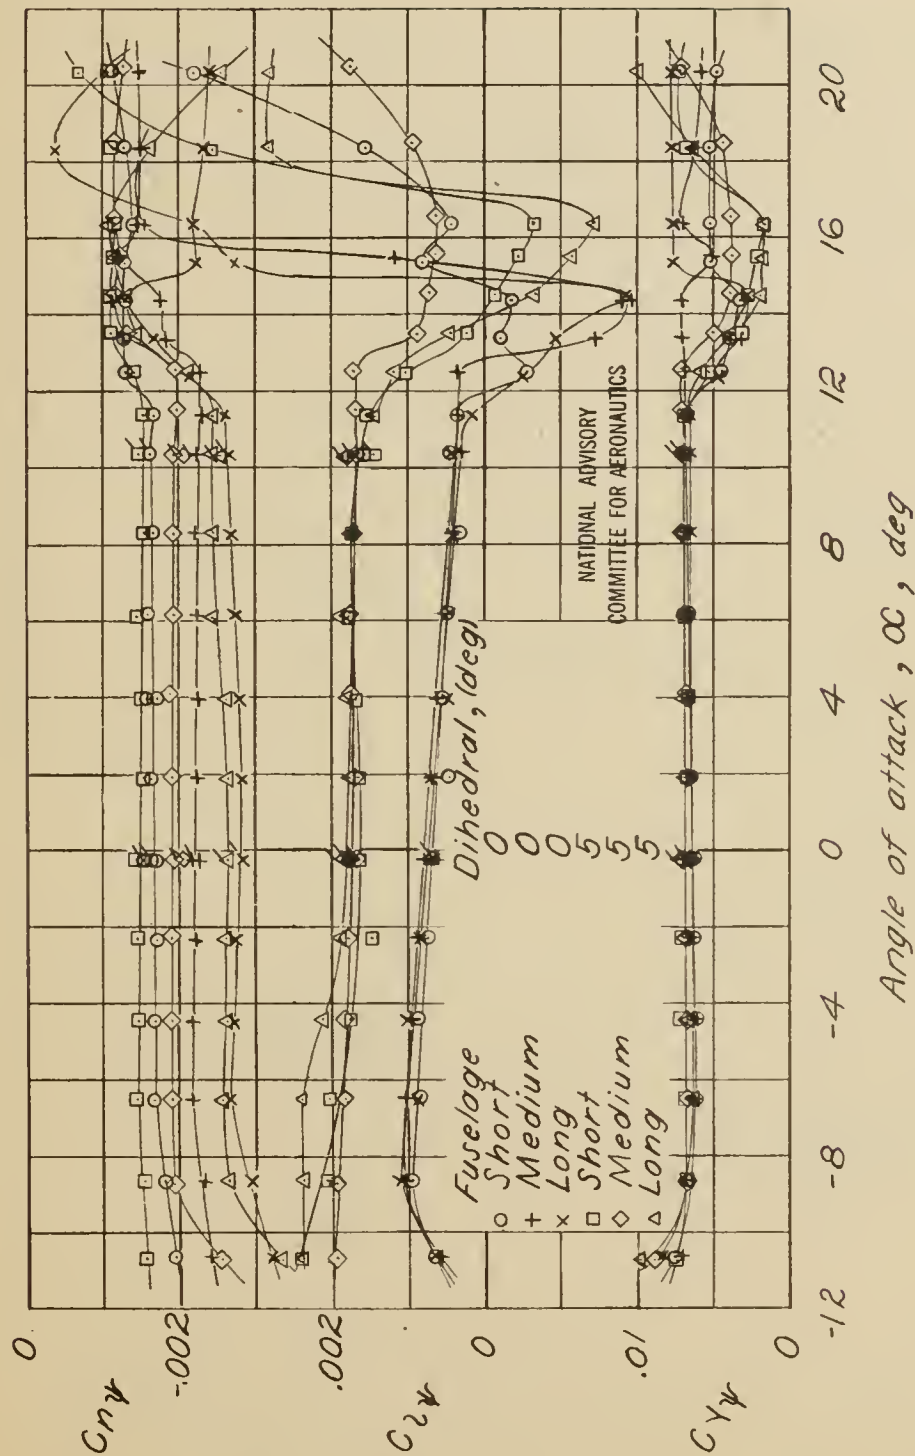 0
Cnψ
-.002
.002
Clψ
0
.01
CYψ
0
-12 -8 -4 0 4 8 12 16 20
Angle of attack, α, deg
Fuselage Dihedral, (deg)
○ Short 0
+ Medium 0
× Long 0
□ Short 5
◇ Medium 5
△ Long 5
NATIONAL ADVISORY
COMMITTEE FOR AERONAUTICS